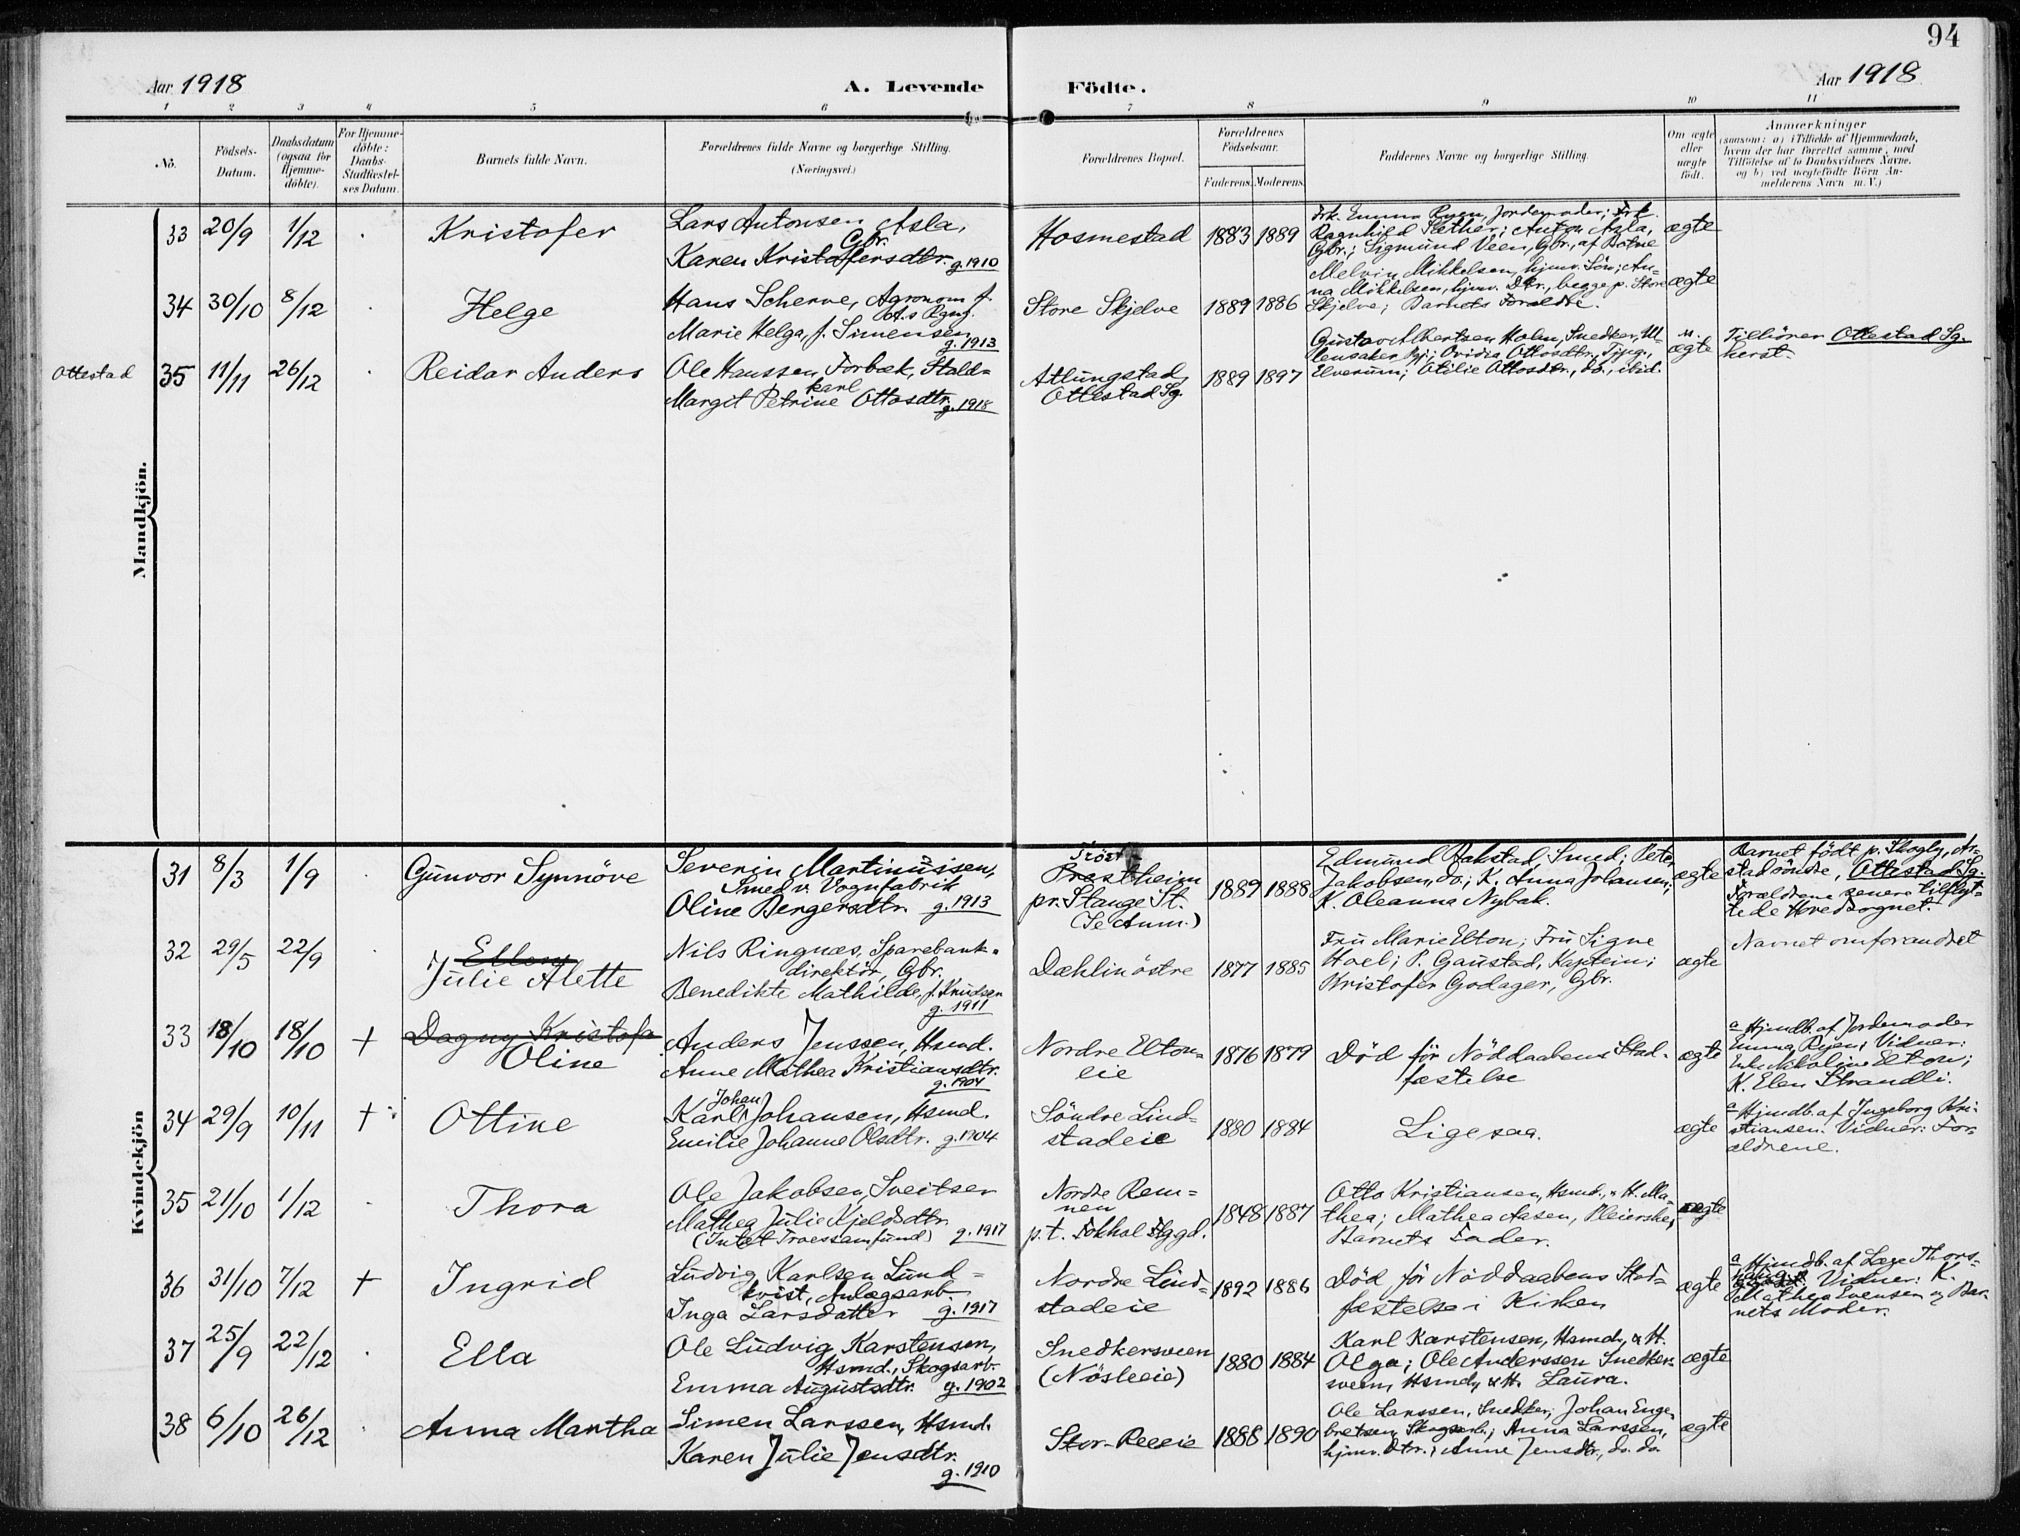 94
Aar 1918
A. Levende Födte.
Aar 1918
1 2 3 4 5 6 7 8 9 10 11
No.
Födsels-
Datum.
Daabsdatum
(ogsaa for
Hjemme-
döbte).
For Hjemme-
döbte:
Daabs-
Stadfæstel-
ses Datum.
Barnets fulde Navn.
Forældrenes fulde Navne og borgerlige Stilling.
(Næringsvei.)
Forældrenes Bopæl.
Forældrenes
Födselsaar.
Faderens. Moderens.
Faddernes Navne og borgerlige Stilling.
Om ægte
eller
uægte
födt.
Anmærkninger
(saasom: a) i Tilfælde af Hjemmedaab,
hvem der har forrettet samme, med
Tilföielse af to Daabsvidners Navne.
og b) ved uægtefödte Börn An-
melderens Navn m. V.)
Mandkjön.
33 20/9 1/12
Kristofer
Lars Antonsen Asla,
Gbr.
Karen Kristofersdtr. g. 1910
Hosmestad
1883 1889
Frk. Emma Ryen, Jordemoder; Frk.
Ragnhild Sæther; Anton Asla,
Gbr.; Sigmund Veen, Gbr., af Botne
ægte
34 30/10 8/12
Helge
Hans Scherve, Agronom f.
Marie Helga, f. Simensen
g. 1913
Store Skjelve
1889 1886
Melvin Mikkelsen, hjmv. Sön; An-
na Mikkelsen, hjmv. Dtr., begge p. Store
Skjelve; Barnets Forældre.
ægte
Ottestad
35 11/11 26/12
Reidar Anders
Ole Hanssen Forbæk, Stald-
karl
Margit Petrine Ottosdtr. g. 1918
Atlungstad,
Ottestad Sg.
1889 1897
Gustav Albertsen Holm, Snedker, Ul-
lensaker; Ovidia Ottosdtr., Tjpge.,
Elverum; Otilie Ottosdtr., do., ibid.
u.
ægte
Tilhörer Ottestad Sg.
herst.
Kvindekjön
31 8/3 1/9
Gunvor Synnöve
Severin Martinussen,
Smed v. Vognfabrik
Oline Bergersdtr. g. 1913
Tröst-
Prestheim
pr. Stange St.
(Se Anm.)
1889 1888
Edmund Aakstad, Smed; Peter
Jakobsen, do.; K. Anna Johansen;
K. Oleanna Nybak.
ægte
Barnet födt p. Skogly, Ar-
stad söndre, Ottestad Sg.
Forældrene senere tilflyt-
tede Hovedsognet.
32 29/5 22/9
Ellen
Julie Alette
Nils Ringnæs, Sparebank-
direktör, Gbr.
Benedikte Mathilde, f. Knudsen
g. 1911
Dæhlin östre
1877 1885
Fru Marie Elton; Fru Signe
Hoel; P. Gaustad, Kaptein;
Kristofer Godager, Gbr.
ægte
Navnet omforandret
33 18/10 18/10 +
Dagny Kristofa
Oline
Anders Jenssen, Hsmd.
Anne Mathea Kristiansdtr.
g. 1904
Nordre Elton-
eie
1876 1879
Död för Nöddaabens Stad-
fæstelse
ægte
a Hjmdb. af Jordemoder
Emma Ryen; Vidner:
Enke Nikoline Elton;
K. Elen Strandli.
34 29/9 10/11 +
Ottine
Johan
Karl Johansen, Hsmd.
Emilie Johanne Olsdtr. g. 1904
Söndre Lind-
stadeie
1880 1884
Ligesaa.
ægte
a Hjmdb. af Ingeborg Kri-
stiansen. Vidner: For-
ældrene.
35 21/10 1/12
Thora
Ole Jakobsen, Sveitser
Mathea Julie Kjeldsdtr.
(Intet Troessamfund) g. 1917
Nordre Rem-
men
p. t. Fokhol Bggd.
1848 1887
Otto Kristiansen, Hsmd., & H. Ma-
thea; Mathea Aasen, Pleierske;
Barnets Fader.
ægte
36 31/10 7/12 +
Ingrid
Ludvig Karlsen Lund-
kvist, Anlægsarb.
Inga Larsdatter g. 1917
Nordre Lind-
stadeie
1892 1886
Död för Nöddaabens Stad-
fæstelse i Kirken
ægte
a Hjmdb. af Læge Thors-
Vidner: K.
Mathea Evensen og Bar-
nets Moder.
37 25/9 22/12
Ella
Ole Ludvig Karstensen,
Hsmd., Skogsarb.
Emma Augustsdtr. g. 1902
Snedkersveen
(Nösleeie)
1880 1884
Karl Karstensen, Hsmd., & H.
Olga; Ole Anderssen Snedker-
sveen, Hsmd., & H. Laura.
ægte
38 6/10 26/12
Anna Martha
Simen Larssen, Hsmd.
Karen Julie Jensdtr.
g. 1910
Stor-Reeeie
1888 1890
Ole Larssen, Snedker; Johan Enge-
bretsen, Skogsarb.; Anna Larssen,
hjmv. Dtr.; Anne Jensdtr., do. do.
ægte